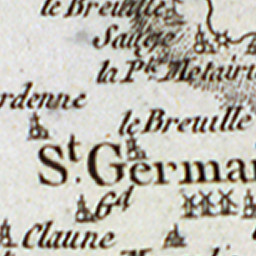 le Breuille
la P.te Metairi
rdenne
le Breuille
St. Germa
6d
Claune